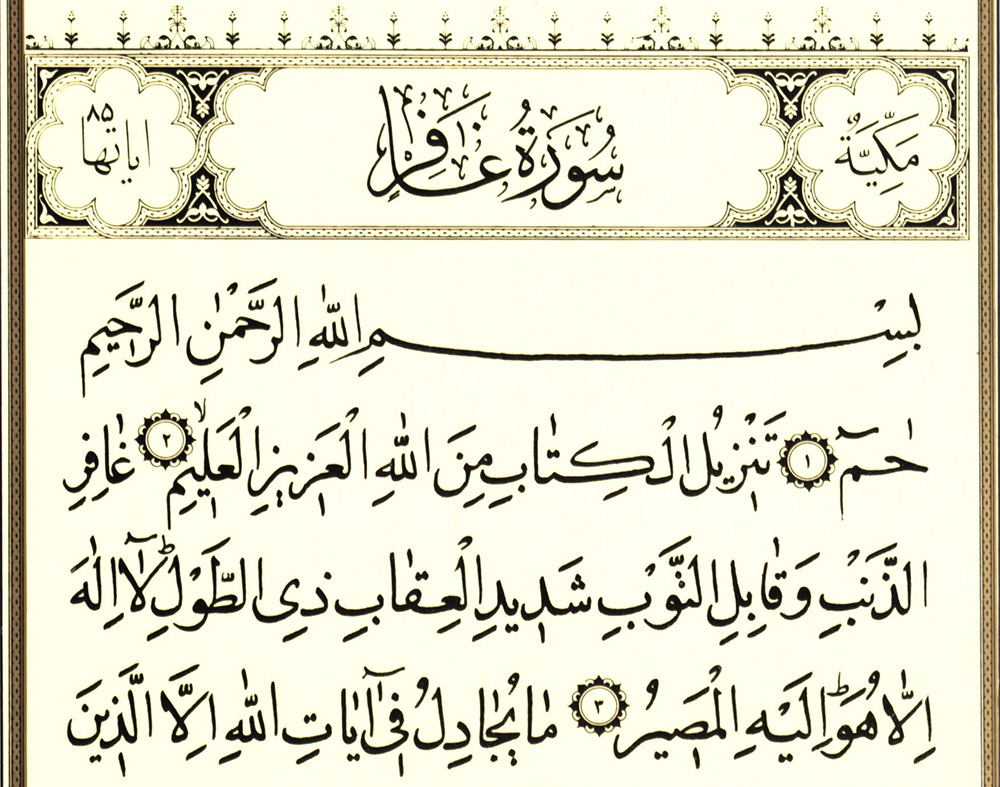 مَكِّيَّةٌ
سُورَةُ غَافِرٍ
اياتها ٨٥
بِسْمِ اللّٰهِ الرَّحْمٰنِ الرَّحِيمِ
حٰمٓ ١ تَنْزِيلُ الْكِتَابِ مِنَ اللّٰهِ الْعَزِيزِ الْعَلِيمِۙ ٢ غَافِرِ
الذَّنْبِ وَقَابِلِ التَّوْبِ شَدِيدِ الْعِقَابِ ذِى الطَّوْلِۜ لَٓا اِلٰهَ
اِلَّا هُوَۜ اِلَيْهِ الْمَصِيرُ ٣ مَا يُجَادِلُ فٓى اٰيَاتِ اللّٰهِ اِلَّا الَّذِينَ